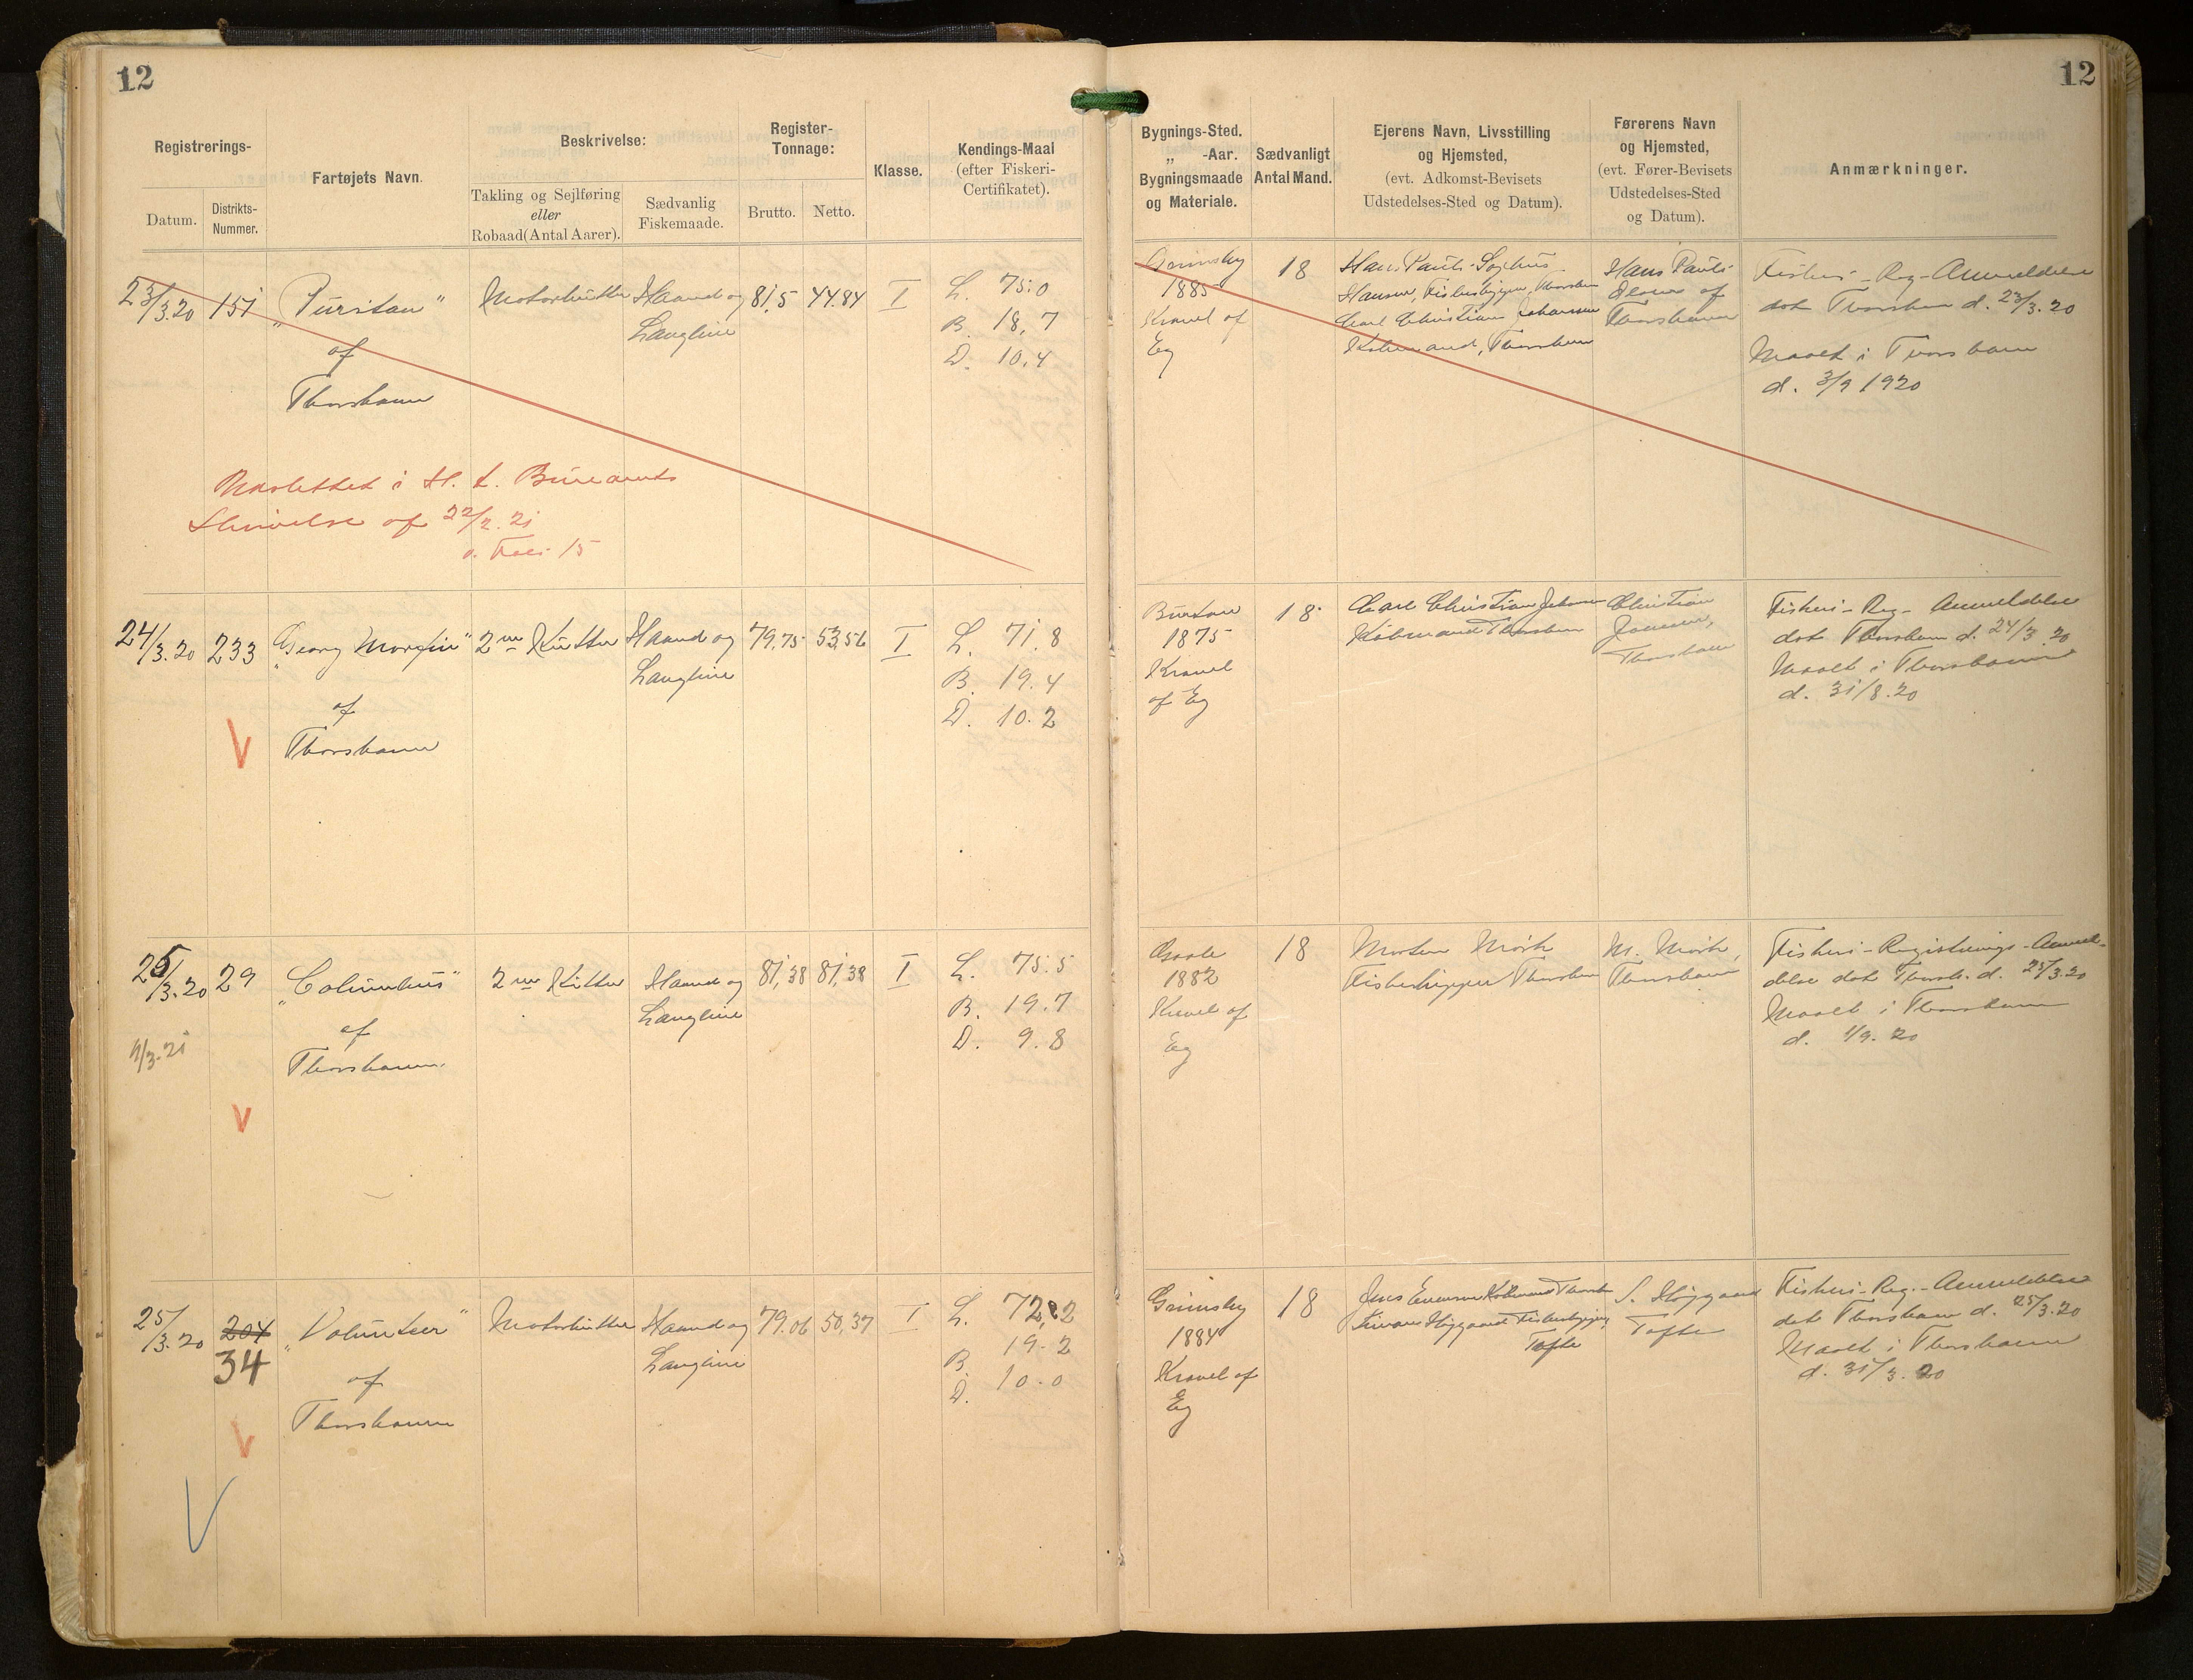 12
12
Registrerings-
Datum.
Distrikts-
Nummer.
Fartøjets Navn.
Beskrivelse:
Takling og Sejlføring
eller
Robaad (Antal Aarer).
Sædvanlig
Fiskemaade.
Register-
Tonnage:
Brutto.
Netto.
Klasse.
Kendings-Maal
(efter Fiskeri-
Certifikatet).
Bygnings-Sted.
„ -Aar.
Bygningsmaade
og Materiale.
Sædvanligt
Antal Mand.
Ejerens Navn, Livsstilling
og Hjemsted,
(evt. Adkomst-Bevisets
Udstedelses-Sted og Datum).
Førerens Navn
og Hjemsted,
(evt. Fører-Bevisets
Udstedelses-Sted
og Datum).
Anmærkninger.
23/3.20
151
„Puritan"
af
Thorshavn
Motorkutter
Haand og
Langline
81,5
44.84
I
L. 75.0
B. 18,7
D. 10,4
Grimsby
1885
Kravel af
Eg
18
Hans Pauli
Hansen, Fiskeskipper, Thorshavn
Carl Christian Johansen
Købmand, Thorshavn
Hans Pauli
af
Thorshavn
Fiskeri-Reg-Anmeldelse
dat Thorshavn d. 23/3.20
Maalt i Thorshavn
d. 3/9 1920
Udslettet i H. t. Bureauets
Skrivelse af 22/2.21
v. Foli 15
24/3.20
233
„Georg
2m Kutter
af
Thorshavn
Haand og
Langline
79,75
53,56
I
L. 71.8
B. 19.4
D. 10.2
V
Burton
1875
Kravel
af Eg
18
Carl Christian Johansen
Købmand Thorshavn
Christian
Thorshavn
Fiskeri-Reg-Anmeldelse
dat Thorshavn d. 24/3 20
Maalt i Thorshavn
d. 31/8.20
25/3.20
29
9/3.21
„Columbus"
af
Thorshavn.
2m Kutter
Haand og
Langline
81,38
81,38
I
L. 75.5
B. 19.7
D. 9.8
V
Goole
1882
Kravel af
Eg
18
Morten Mørk
Fiskeskipper Thorshavn
M. Mørk,
Thorshavn
Fiskeri-Registrerings-Anmel-
delse dat Thorsh. d. 25/3.20
Maalt i Thorshavn
d. 1/9. 20
25/3.20
204
34
„Volunteer"
af
Thorshavn
Motorkutter
Haand og
Langline
79.06
50,37
I
L. 72,2
B. 19.2
D. 10.0
V
V
Grimsby
1884
Kravel af
Eg
18
Jens Evensen Købmand Thorshavn
Højgaard Fiskeskipper,
Tofte
S. Højgaard
Tofte
Fiskeri-Reg.-Anmeldelse
dat Thorshavn d. 25/3.20
Maalt i Thorshavn
d. 31/3.20